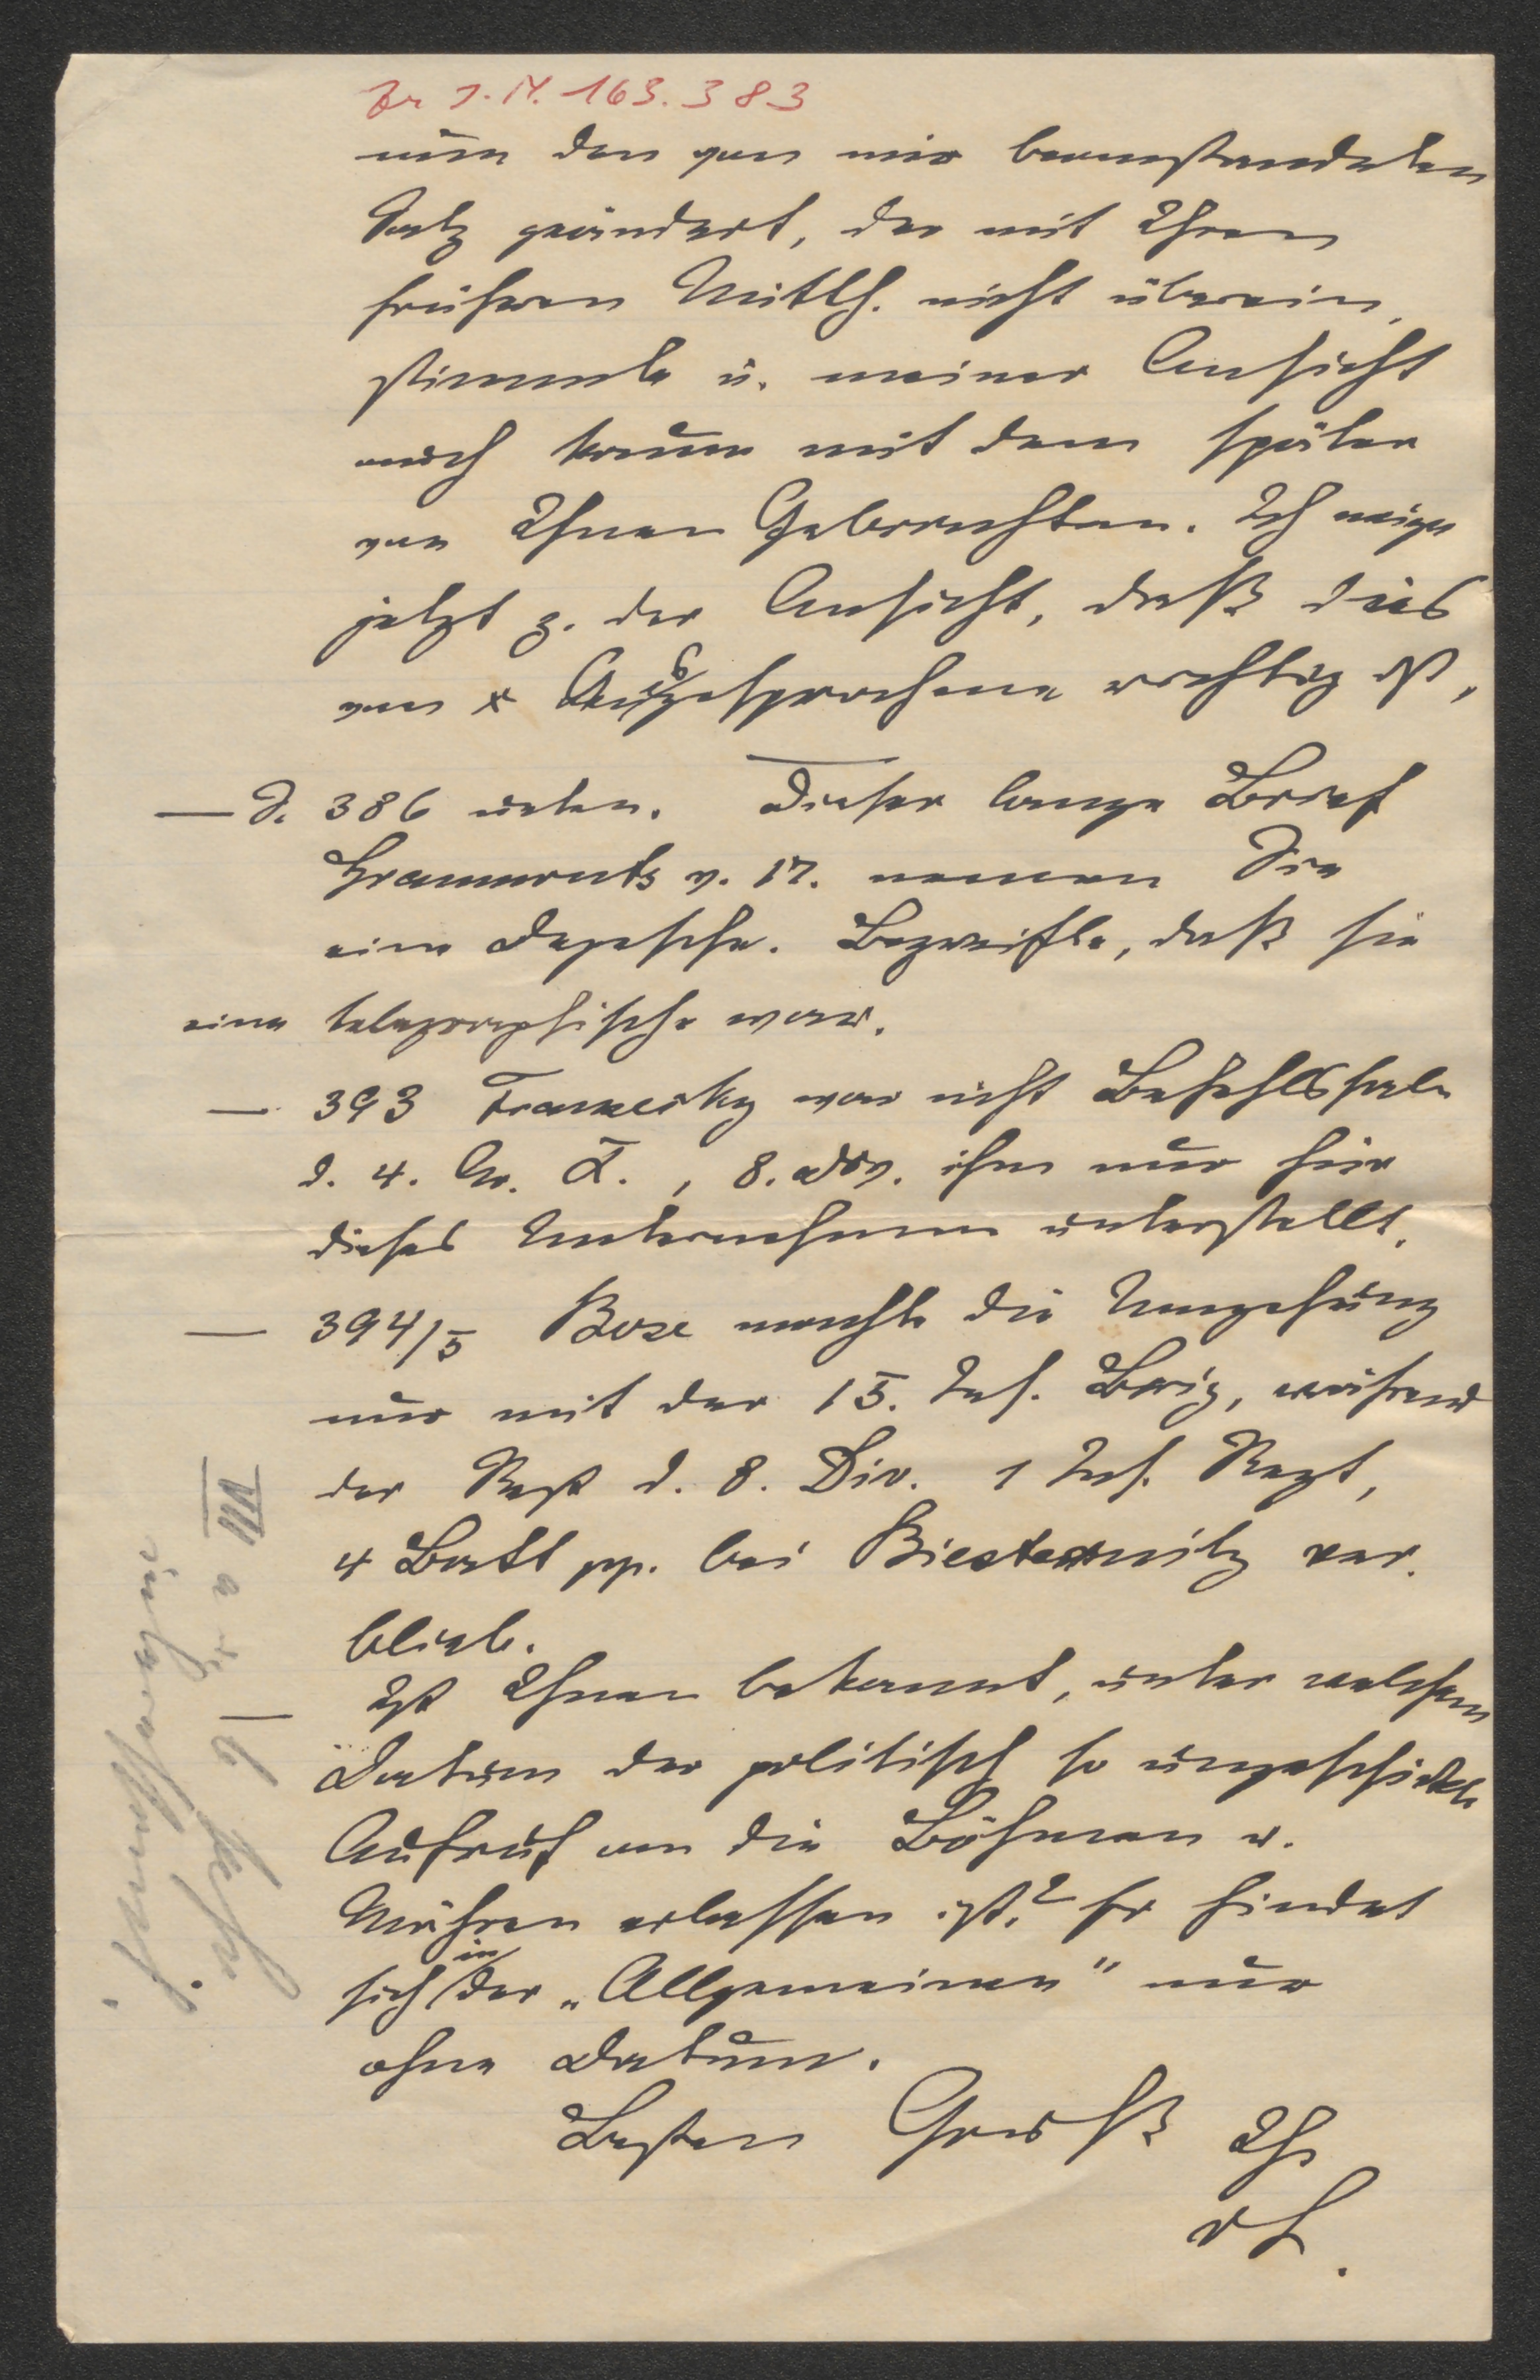 Zu J.N. 163.383
nun den von mir beanstandeten
Satz geändert, der mit Ihren
früheren Mitth. nicht überein-
stimmte u. meiner Ansicht
nach kaum mit dem später
von Ihnen Gebrachten. Ich neige
jetzt z. der Ansicht, daß das
von x Ausgesprochene richtig ist,
— S. 386 unten. Dieser lange Brief
Grammonts v. 17. nennen Sie
eine Depesche. Bezweifle, daß sie
eine telegraphische war.
— 393 Fransecky war nicht Befehlshaber
d. 4. A. K., 8. Div. ihm nur für
dieses Unternehmen unterstellt.
— 394/5 Bose machte die Umgehung
nur mit der 15. Inf. Brig, während
der Rest d. 8. Div. 1 Inf. Regt,
4 Batt pp. bei verblieb.
Ist Ihnen bekannt, unter welchem
Datum der politisch so ungeschickte
Aufruf an die Böhmen u.
Mähren erlassen ist? Er findet
sich in der „Allgemeinen" nur
ohne Datum.
Besten Gruß Ihr
vL.
VIII